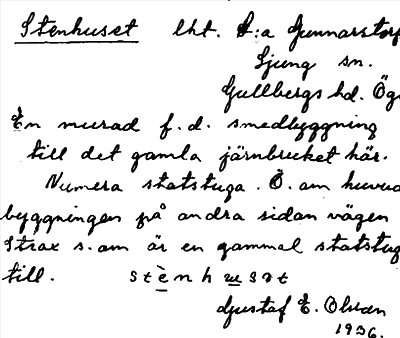 Stenhuset lht. St:a Gunnarstorp
Ljung sn.
Gullbergs hd. Ög
En murad f.d. smedbyggning
till det gamla järnbruket här.
Numera statstuga. Ö. om huvud
byggningen på andra sidan vägen
Strax s. om är en gammal statstug
till. stènhusət
Gustaf E. Olsson
1936.